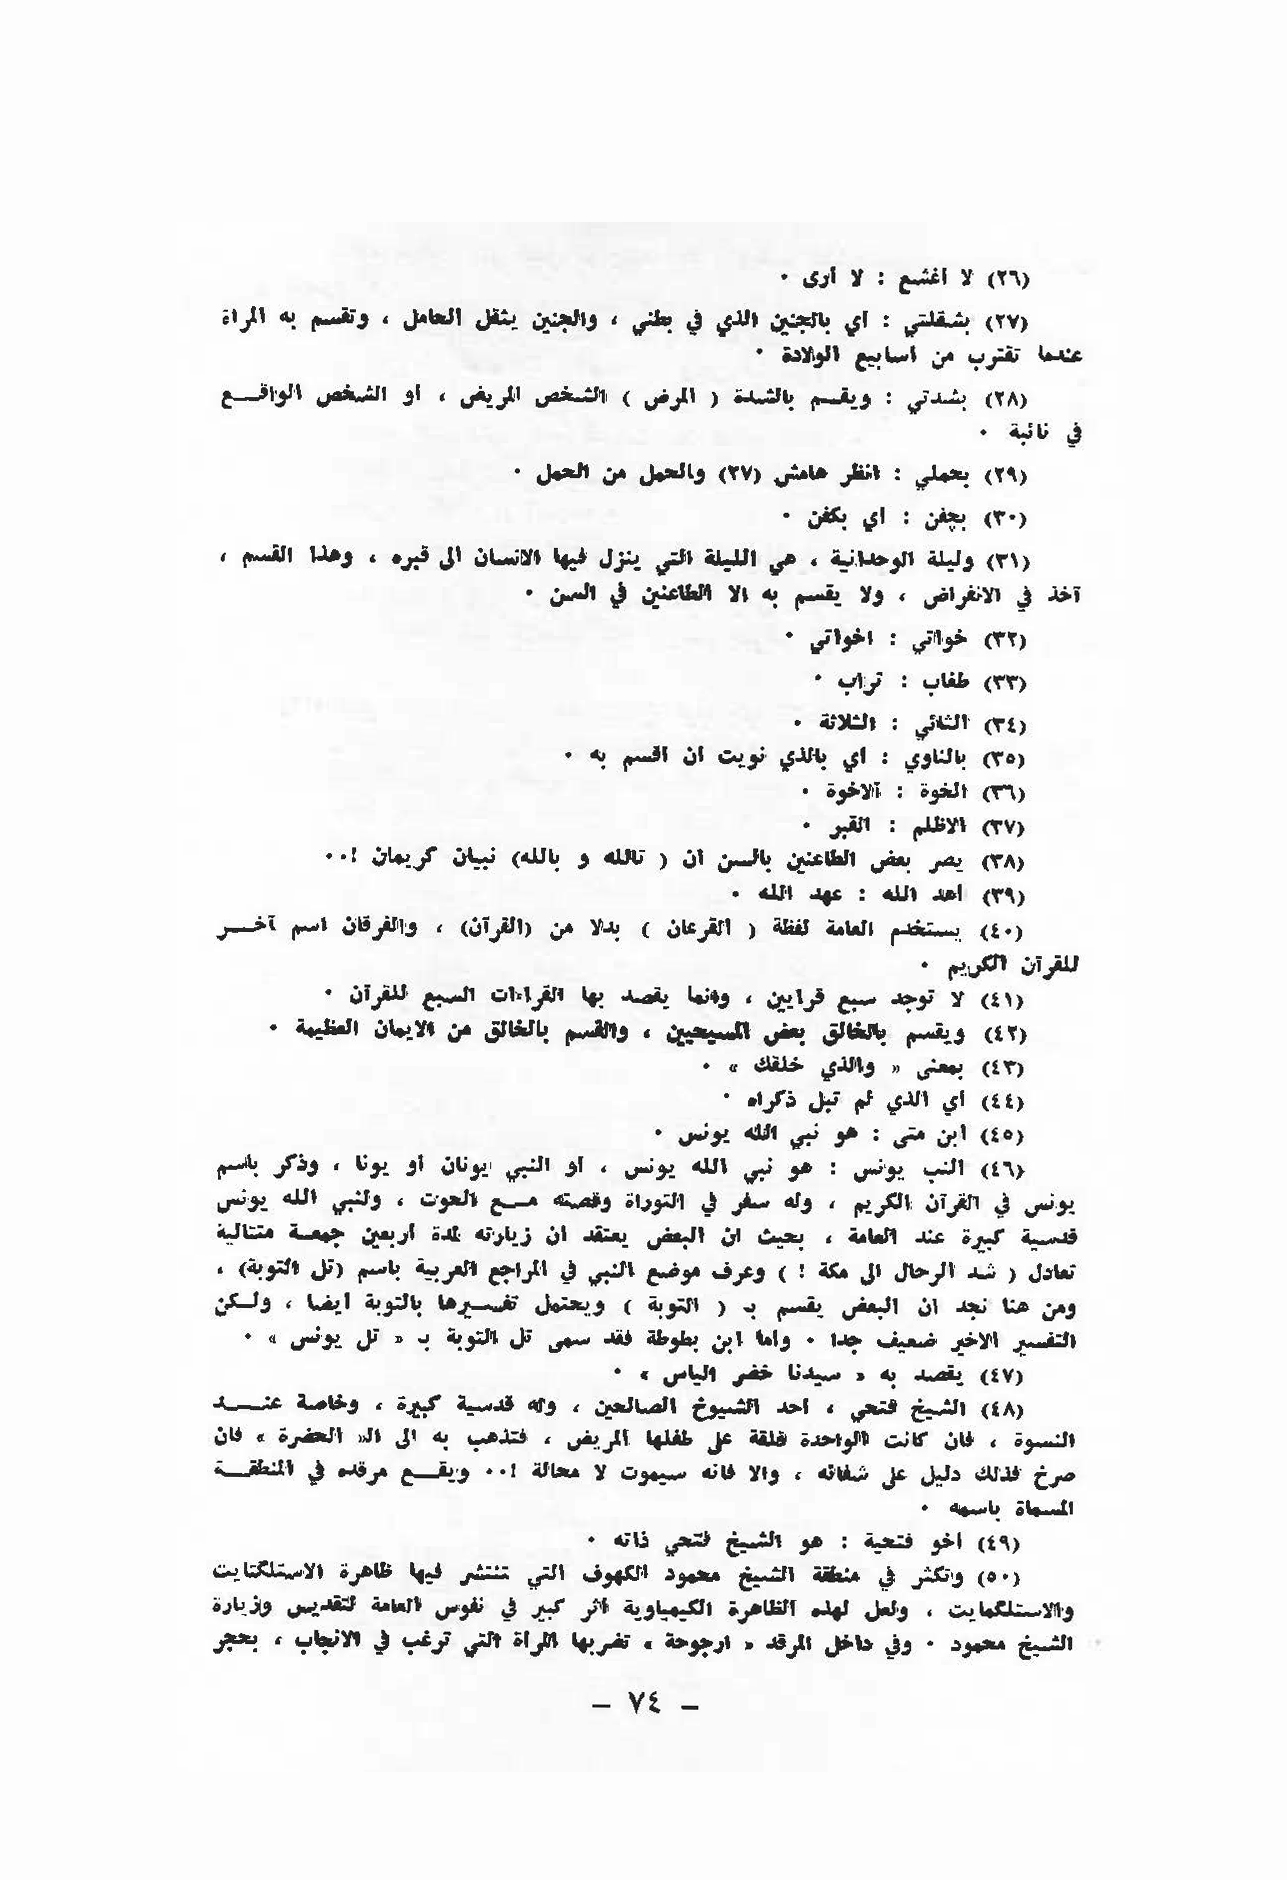 (٢٦) لا اغشع : لا ارى ٠
(٢٧) بشقلتي : اي بالجنين الذي في بطني ، والجنين يثقل الحامل ، وتقسم به المراة
عندما تقترب من اسابيع الولادة ٠
(٢٨) بشدتي : ويقسم بالشدة ( المرض ) الشخص المريض ، او الشخص الواقع
في نائبة ٠
(٢٩) بحملي : انظر هامش (٢٧) والحمل من الحمل ٠
(٣٠) بچفن : اي بكفن ٠
(٣١) وليلة الوحدانية ، هي الليلة التي ينزل فيها الانسان الى قبره ، وهذا القسم ،
آخذ في الانقراض ، ولا يقسم به الا الطاعنين في السن ٠
(٣٢) خواتي : اخواتي ٠
(٣٣) طفاب : تراب ٠
(٣٤) الثاثي : الثلاثة ٠
(٣٥) بالناوي : اي بالذي نويت ان اقسم به ٠
(٣٦) الخوة : الاخوة ٠
(٣٧) الاظلم : القبر ٠
(٣٨) يصر بعض الطاعنين بالسن ان ( تالله و بالله) نبيان كريمان !٠٠
(٣٩) اهد الله : عهد الله ٠
(٤٠) يستخدم العامة لفظة ( القرعان ) بدلا من (القرآن) ، والفرقان اسم آخر
للقرآن الكريم ٠
(٤١) لا توجد سبع قرايين ، وانما يقصد بها القراءات السبع للقرآن ٠
(٤٢) ويقسم بالخالق بعض المسيحيين ، والقسم بالخالق من الايمان العظيمة ٠
(٤٣) بمعنى « والذي خلقك » ٠
(٤٤) اي الذي لم تبل ذكراه ٠
(٤٥) ابن متى : هو نبي الله يونس ٠
(٤٦) النب يونس : هو نبي الله يونس ، او النبي يونان او يونا ، وذكر باسم
يونس في القرآن الكريم ، وله سفر في التوراة وقصته مع الحوت ، ولنبي الله يونس
قدسية كبيرة عند العامة ، بحيث ان البعض يعتقد ان زيارته لمدة اربعين جمعة متتالية
تعادل ( شد الرحال الى مكة ! ) وعرف موضع النبي في المراجع العربية باسم (تل التوبة) ،
ومن هنا نجد ان البعض يقسم بـ ( التوبة ) ويحتمل تفسيرها بالتوبة ايضا ، ولكن
التفسير الاخير ضعيف جدا ٠ واما ابن بطوطة فقد سمى تل التوبة بـ « تل يونس » ٠
(٤٧) يقصد به « سيدنا خضر الياس » ٠
(٤٨) الشيخ فتحي ، احد الشيوخ الصالحين ، وله قدسية كبيرة ، وخاصة عند
النسوة ، فان كانت الواحدة قلقة على طفلها المريض ، فتذهب به الى الـ« الحضرة » فان
صرخ فذلك دليل على شفائه ، والا فانه سيموت لا محالة !٠٠ ويقع مرقده في المنطقة
المسماة باسمه ٠
(٤٩) اخو فتحية : هو الشيخ فتحي ذاته ٠
(٥٠) وتكثر في منطقة الشيخ محمود الكهوف التي تنتشر فيها ظاهرة الاستلكتايت
والاستلگمايت ، ولعل لهذه الظاهرة الكيمياوية اثر كبير في نفوس العامة لتقديس وزيارة
الشيخ محمود ٠ وفي داخل المرقد « ارجوحة » تضربها المراة التي ترغب في الانجاب ، بحجر
– ٧٤ –